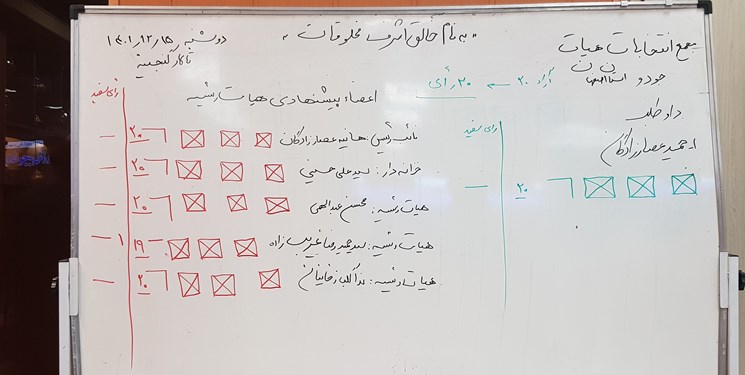 به نام خالق اشرف مخلوقات
دوشنبه ۱۴۰۱٫۱۲٫۱۵
مجمع انتخابات هیات
جودو استان اصفهان
آراء ۲۰ ← ۲۰ رأی
داوطلب
۱- حمید عصارزادگان
رأی سفید
۲۰ —
اعضاء پیشنهادی هیات رئیسه
رأی سفید
نائب رئیس: هانیه عصارزادگان ۲۰ —
خزانه دار: سید علی حسینی ۲۰ —
هیات رئیسه: محسن عبدالهی ۲۰ —
هیات رئیسه: سید حمیدرضا غریب زاده ۱۹ — ۱
هیات رئیسه: ۲۰ —